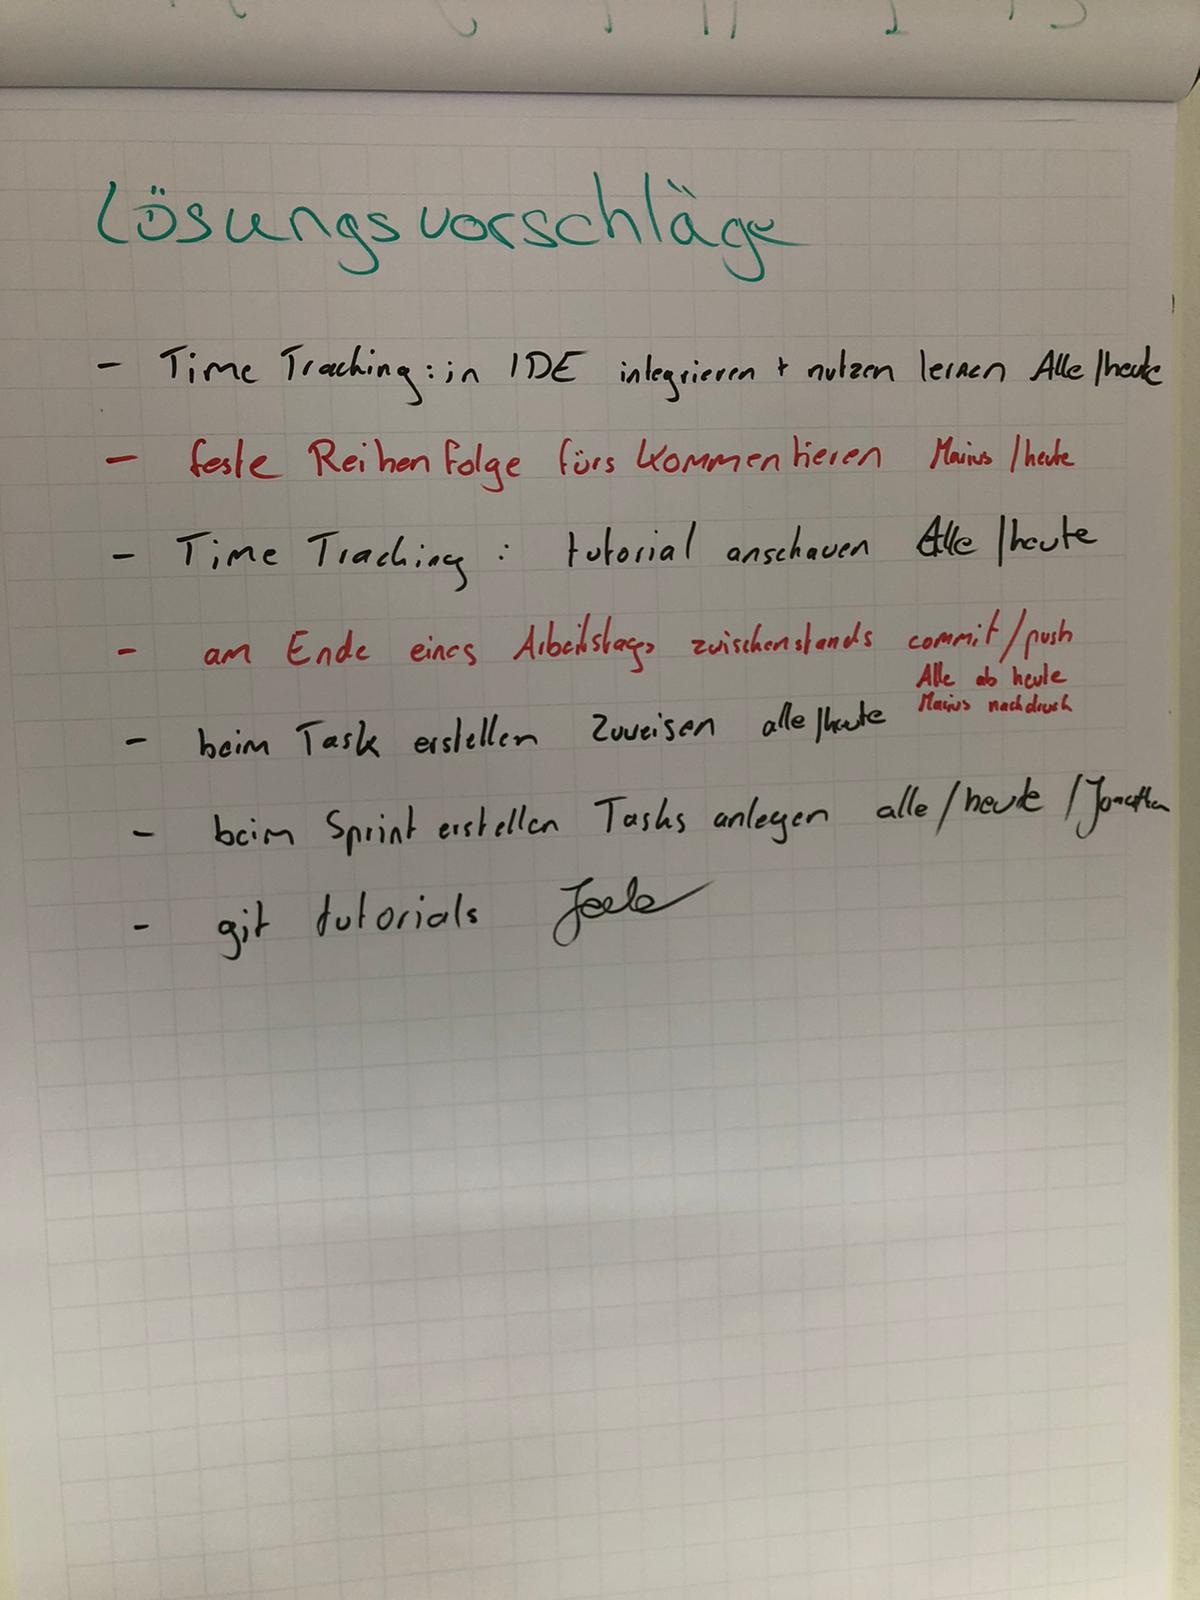 Lösungsvorschläge
- Time Tracking: in IDE integrieren + nutzen lernen Alle /heute
- feste Reihenfolge fürs Kommentieren Marius /heute
- Time Tracking : tutorial anschauen Alle /heute
- am Ende eines Arbeitstags zwischenstands commit/push
Alle ab heute
Marius nachdruck
- beim Task erstellen zuweisen alle/heute
- beim Sprint erstellen Tasks anlegen alle/heute /Jonathan
- git tutorials